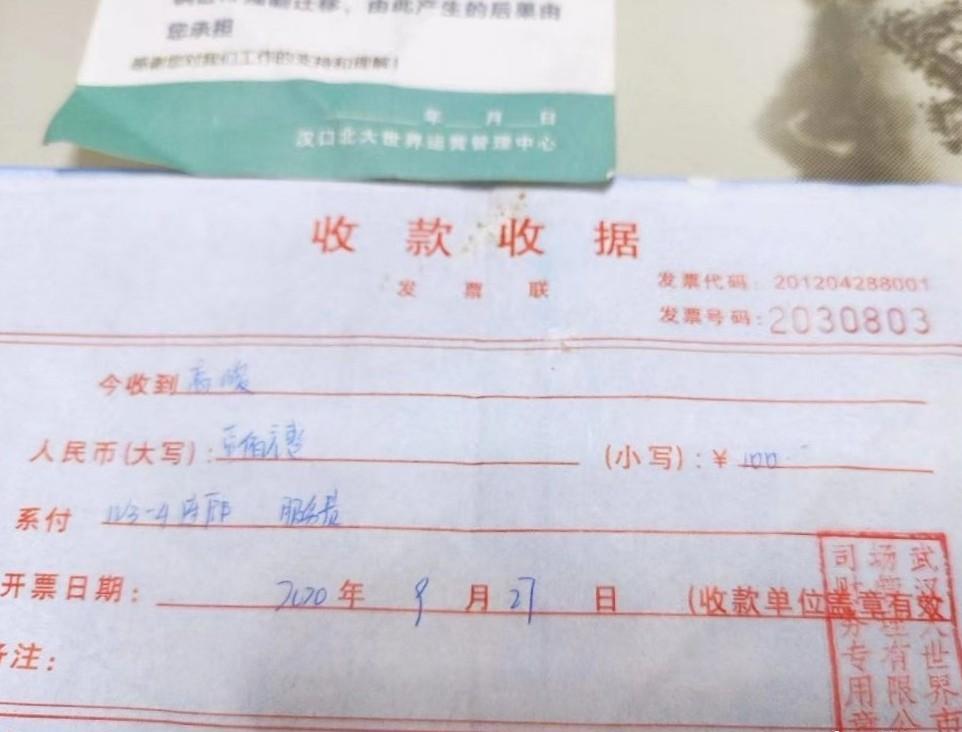 迁移，由此产生的后果由
您承担
感谢您对我们工作的支持和理解！
年 月 日
汉口北大世界运营管理中心
收款收据
发票联
发票代码：201204288001
发票号码：2030803
今收到
人民币(大写)：壹佰元整 (小写)：￥100
系付 服务费
开票日期：2020年9月27日 (收款单位盖章有效
备注：
武汉大世界市
场管理有限公
司财务专用章